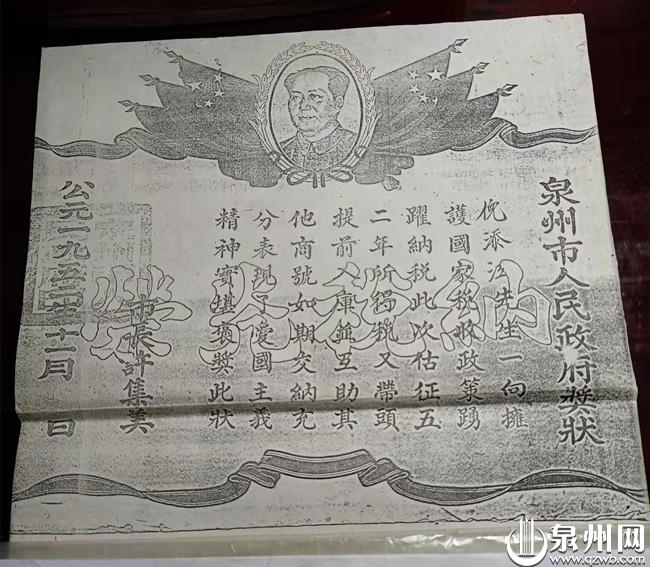 泉州市人民政府獎狀
倪添 先生一向擁
護國家稅收政策踴
躍納稅此次估征五
二年所得稅又帶頭
提前入庫並互助其
他商號如期交納充
分表現了愛國主義
精神實堪褒獎此狀
市長許集美
公元一九五 年十一月 日
納 光榮
泉州网
www.qzwb.com